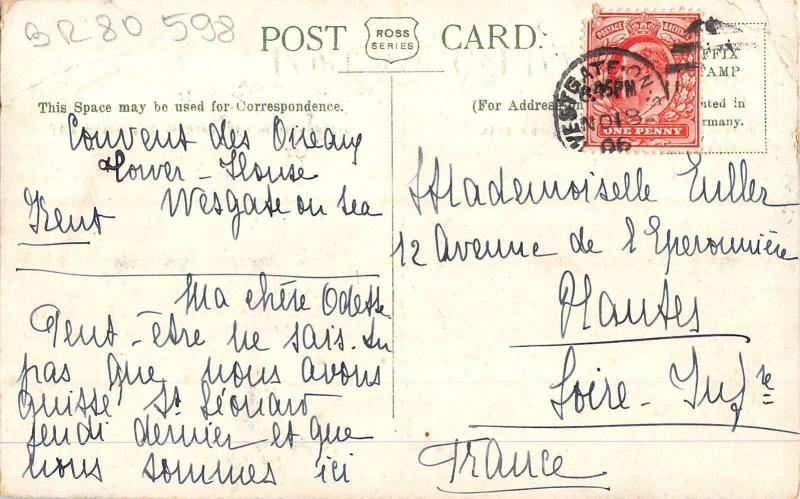 BR80 598
POST CARD.
ROSS
SERIES
This Space may be used for Correspondence.
(For Address
AFFIX
STAMP
nted in
rmany.
POSTAGE
ONE PENNY
WESTGATE-ON-S
8.45PM
NO 18
06
Couvent des Oiseaux
Tower-House
Wesgate on sea
Kent
Ma chère Odette
Peut-être ne sais-tu
pas que nous avons
quitté St Léonard
jeudi dernier et que
nous sommes ici
Mademoiselle Euller
12 Avenue de l'Eperonnière
Nantes
Loire-Infre
France